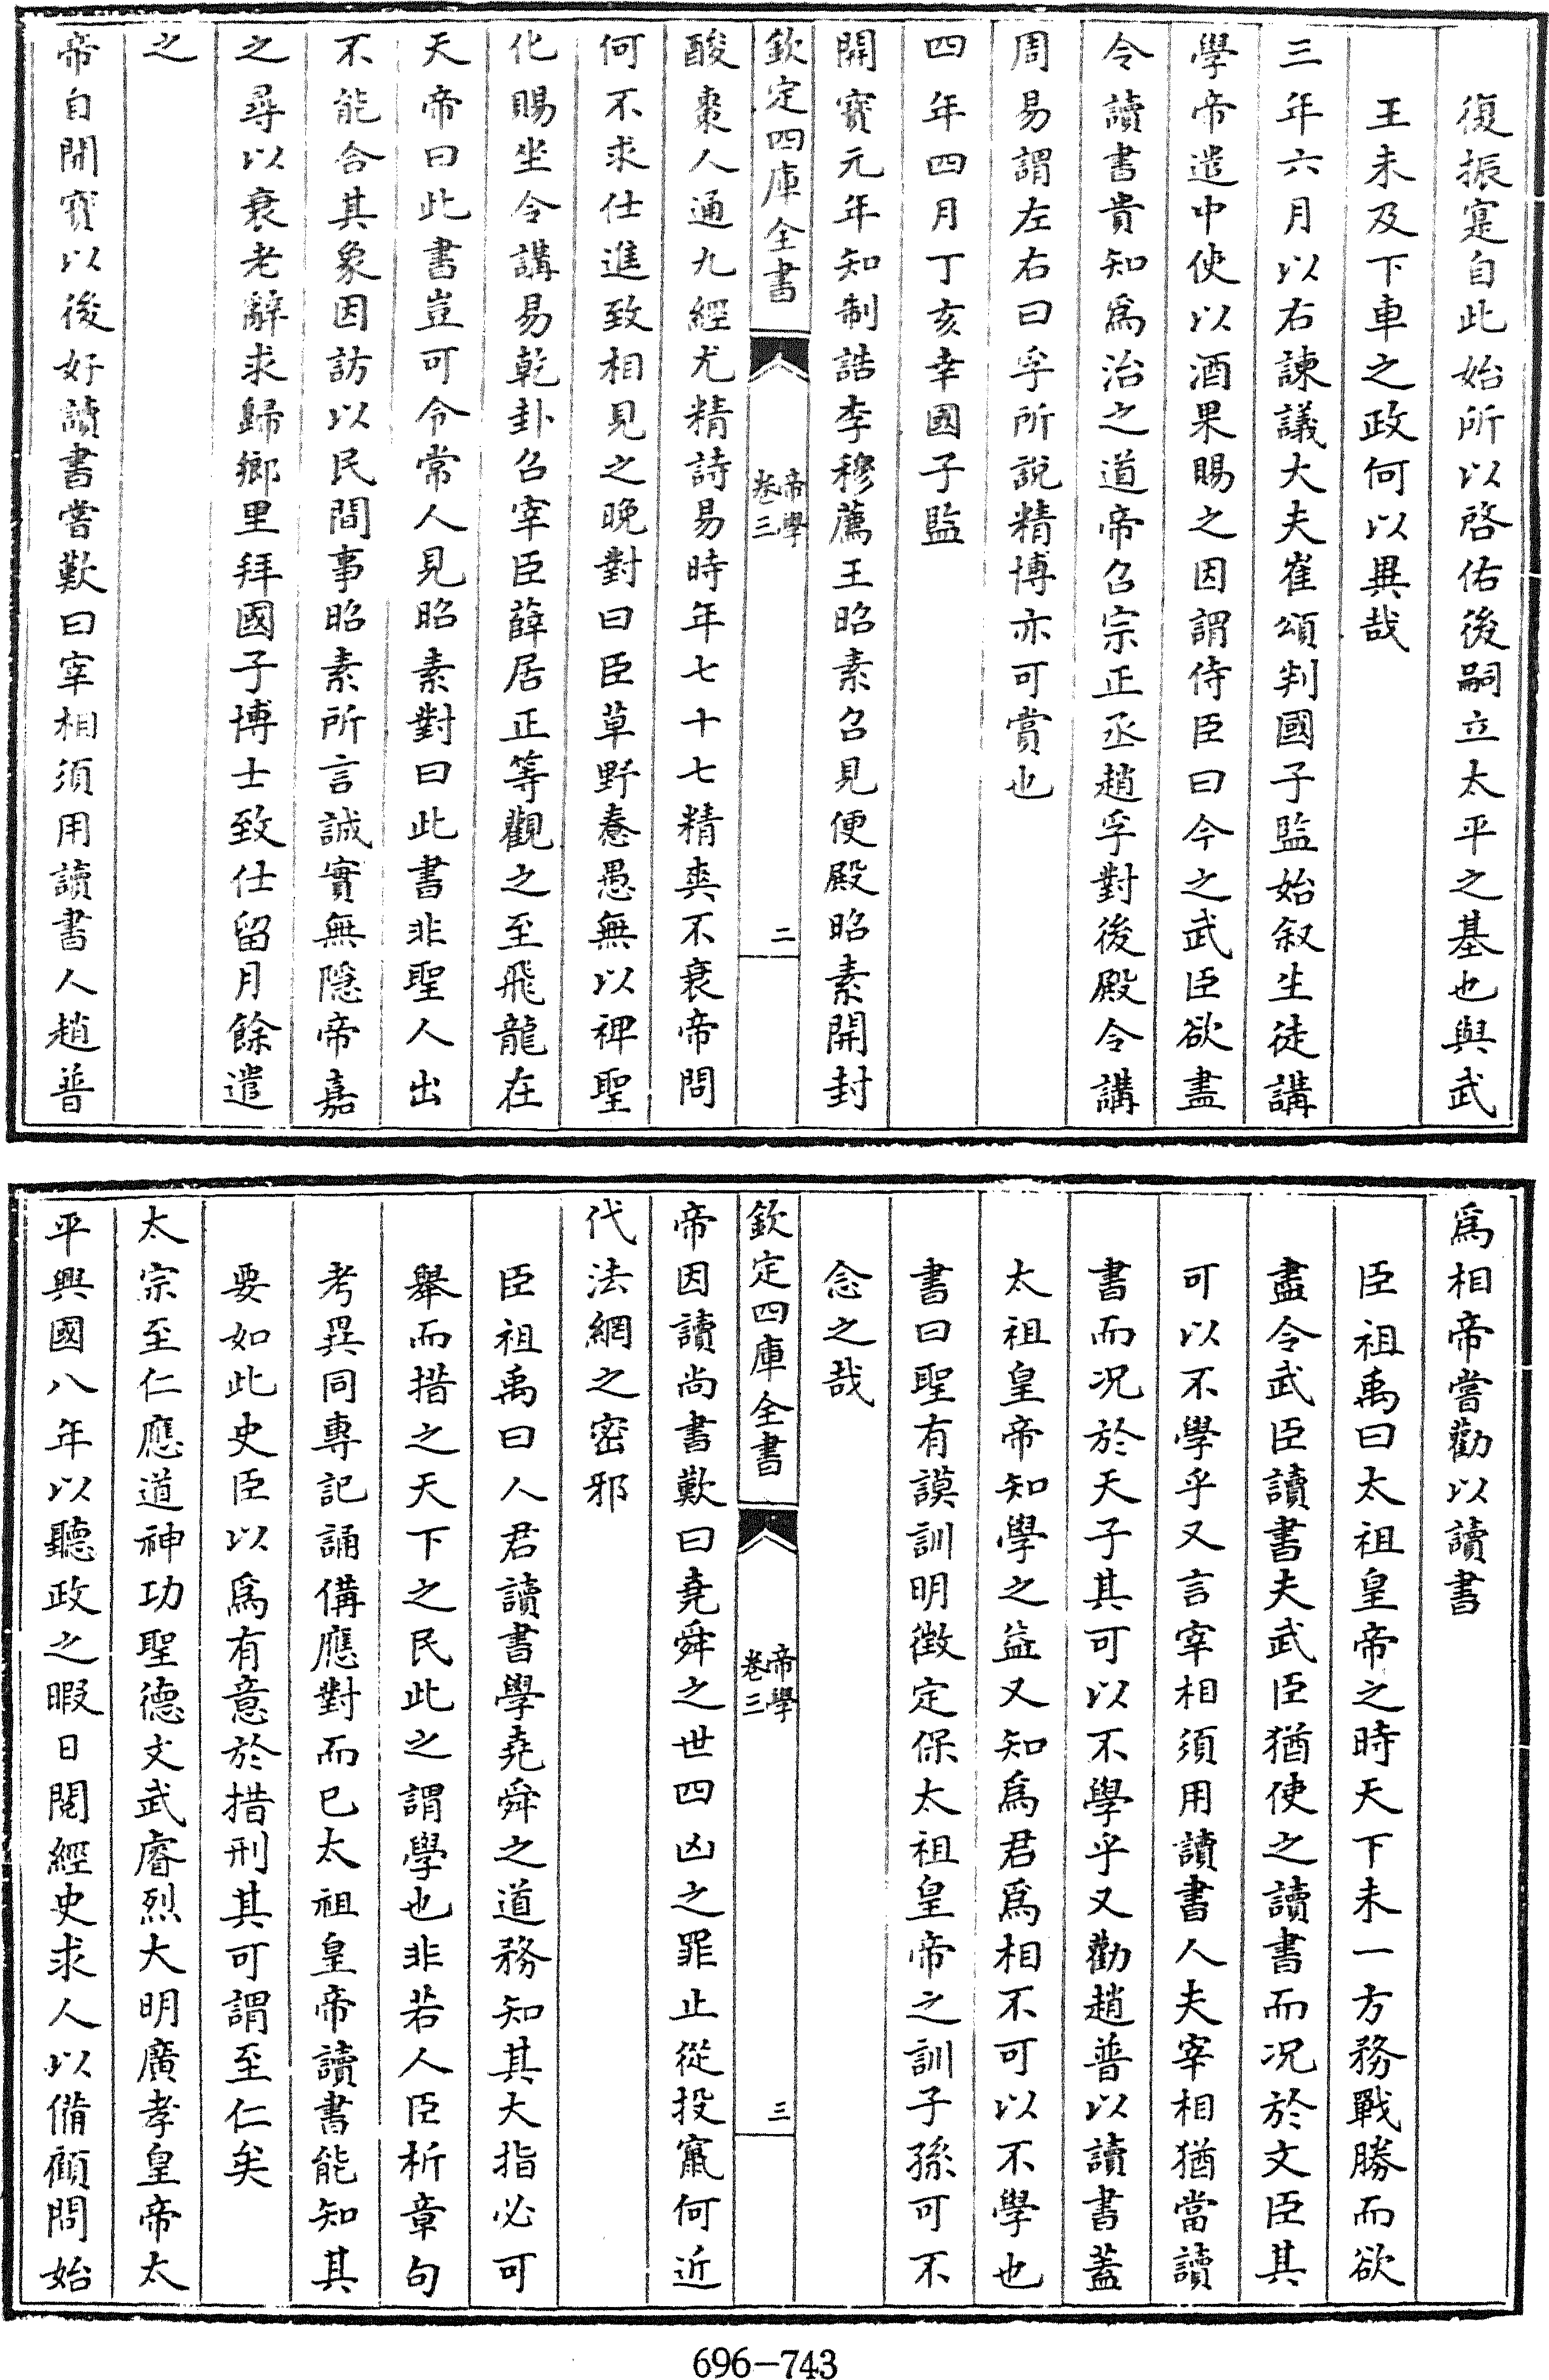 復振寔自此始所以啓佑後嗣立太平之基也與武
王未及下車之政何以異哉
三年六月以右諫議大夫崔頌判國子監始叙生徒講
學帝遣中使以酒果賜之因謂侍臣曰今之武臣欲盡
令讀書貴知為治之道帝召宗正丞趙孚對後殿令講
周易謂左右曰孚所說精博亦可賞也
四年四月丁亥幸國子監
開寳元年知制誥李穆薦王昭素召見便殿昭素開封
欽定四庫全書
帝學
卷三
二
酸棗人通九經尤精詩易時年七十七精爽不衰帝問
何不求仕進致相見之晚對曰臣草野惷愚無以裨聖
化賜坐令講易乾卦召宰臣薛居正等觀之至飛龍在
天帝曰此書豈可令常人見昭素對曰此書非聖人出
不能合其象因訪以民間事昭素所言誠實無隱帝嘉
之尋以衰老辭求歸鄉里拜國子博士致仕留月餘遣
之
帝自開寳以後好讀書嘗歎曰宰相須用讀書人趙普
為相帝嘗勸以讀書
臣祖禹曰太祖皇帝之時天下未一方務戰勝而欲
盡令武臣讀書夫武臣猶使之讀書而况於文臣其
可以不學乎又言宰相須用讀書人夫宰相猶當讀
書而况於天子其可以不學乎又勸趙普以讀書蓋
太祖皇帝知學之益又知為君為相不可以不學也
書曰聖有謨訓明徵定保太祖皇帝之訓子孫可不
念之哉
欽定四庫全書
帝學
卷三
三
帝因讀尚書歎曰堯舜之世四凶之罪止從投竄何近
代法網之密邪
臣祖禹曰人君讀書學堯舜之道務知其大指必可
舉而措之天下之民此之謂學也非若人臣析章句
考異同專記誦備應對而已太祖皇帝讀書能知其
要如此史臣以為有意於措刑其可謂至仁矣
太宗至仁應道神功聖德文武睿烈大明廣孝皇帝太
平興國八年以聽政之暇日閱經史求人以備顧問始
696-743